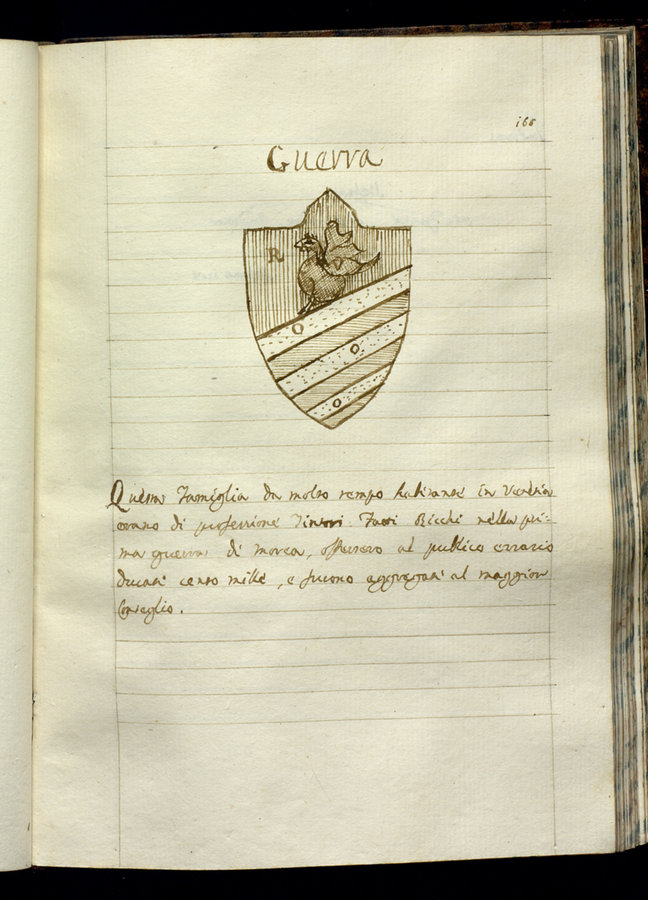 166
Guerra
R
V
O
O
O
Questa Famiglia da molto tempo habitante in Venetia
erano di professione Tintori. Fatti Ricchi nella pri-
ma guerra di morea, offersero al publico errario
Ducati cento mille, e furono aggregati al maggior
Conseglio.